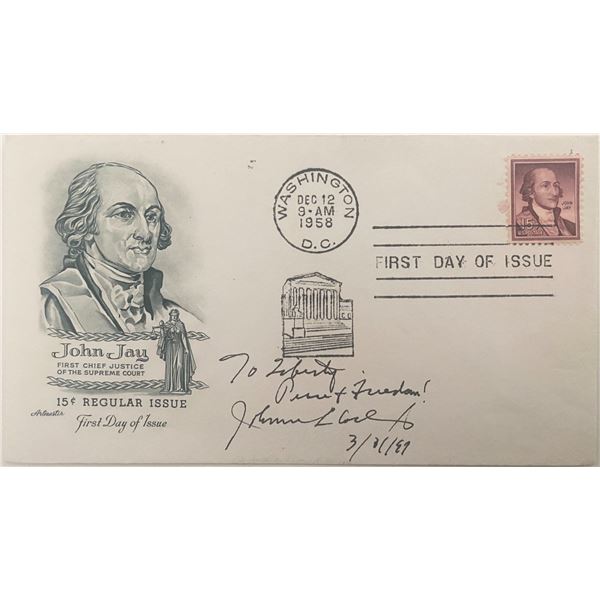 John Jay
FIRST CHIEF JUSTICE
OF THE SUPREME COURT
15¢ REGULAR ISSUE
Artmaster
First Day of Issue
WASHINGTON
DEC 12
9-AM
1958
D.C.
JOHN
JAY
15¢
FIRST DAY OF ISSUE
To Liberty,
& Freedom!